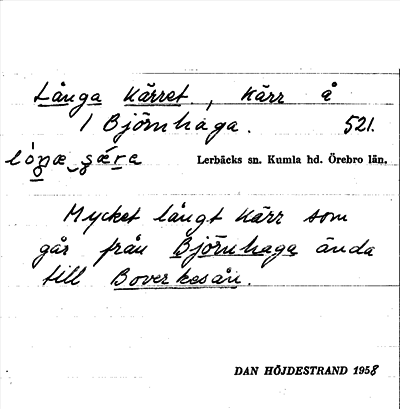 Långa Kärret, Kärr å
1 Björnhaga. 521.
Lerbäcks sn. Kumla hd. Örebro län.
Mycket långt kärr som
går från Björnhaga ända
till Boverkesån.
DAN HÖJDESTRAND 1958